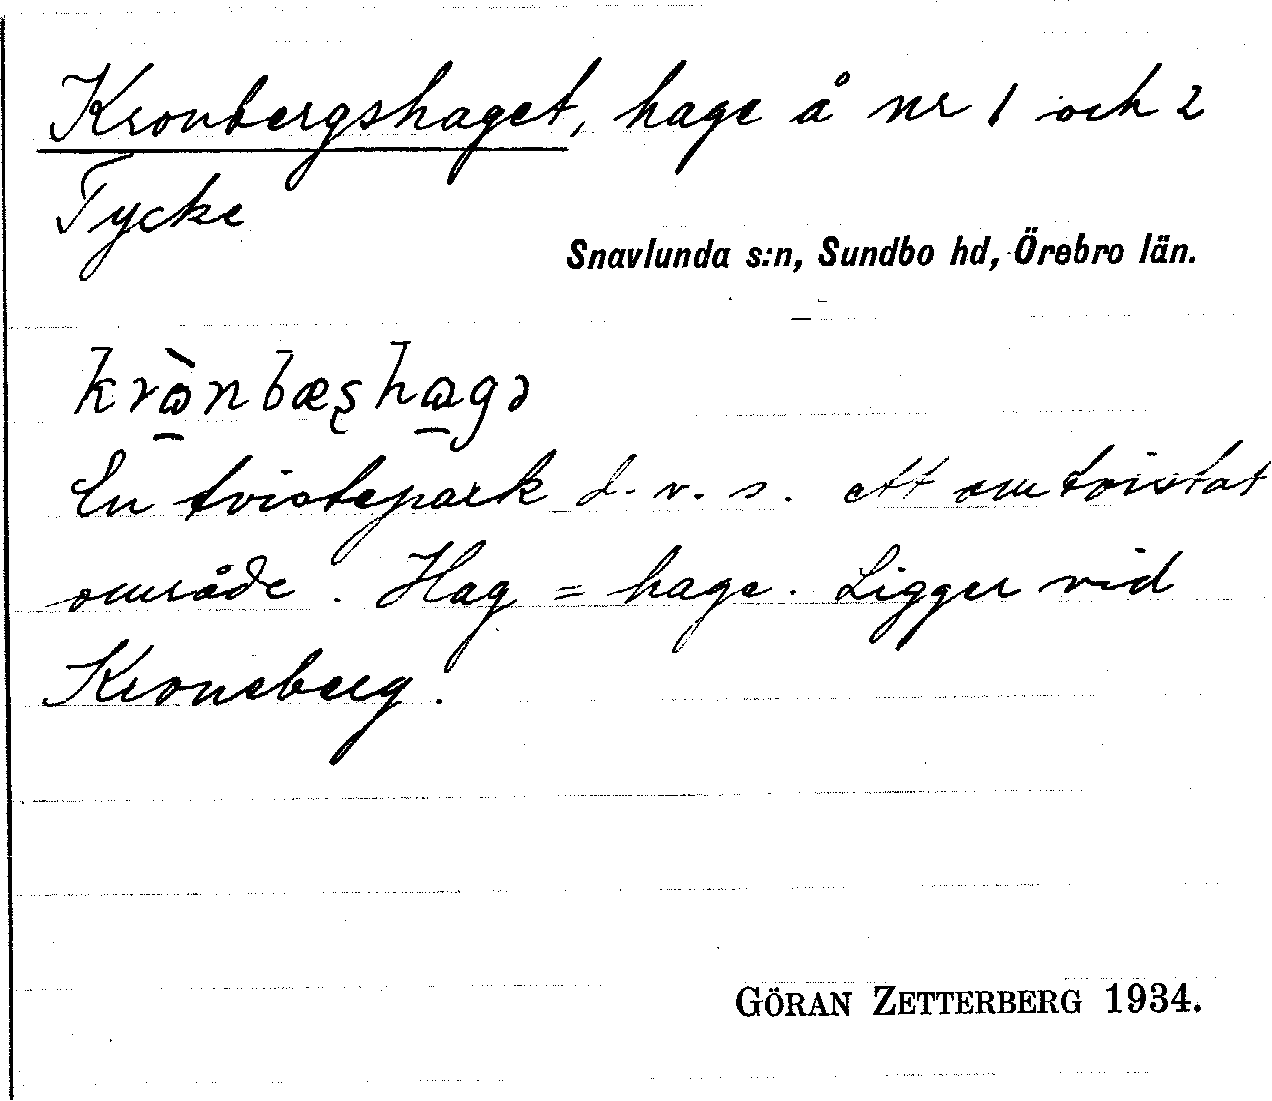 Kronbergshaget, hage å nr 1 och 2
Tycke
Snavlunda s:n, Sundbo hd, Örebro län.
krɷ̀nbæʂhɷgə
En tvistepark d.v.s. ett omtvistat
område. Hag = hage. Ligger vid
Kroneberg.
GÖRAN ZETTERBERG 1934.